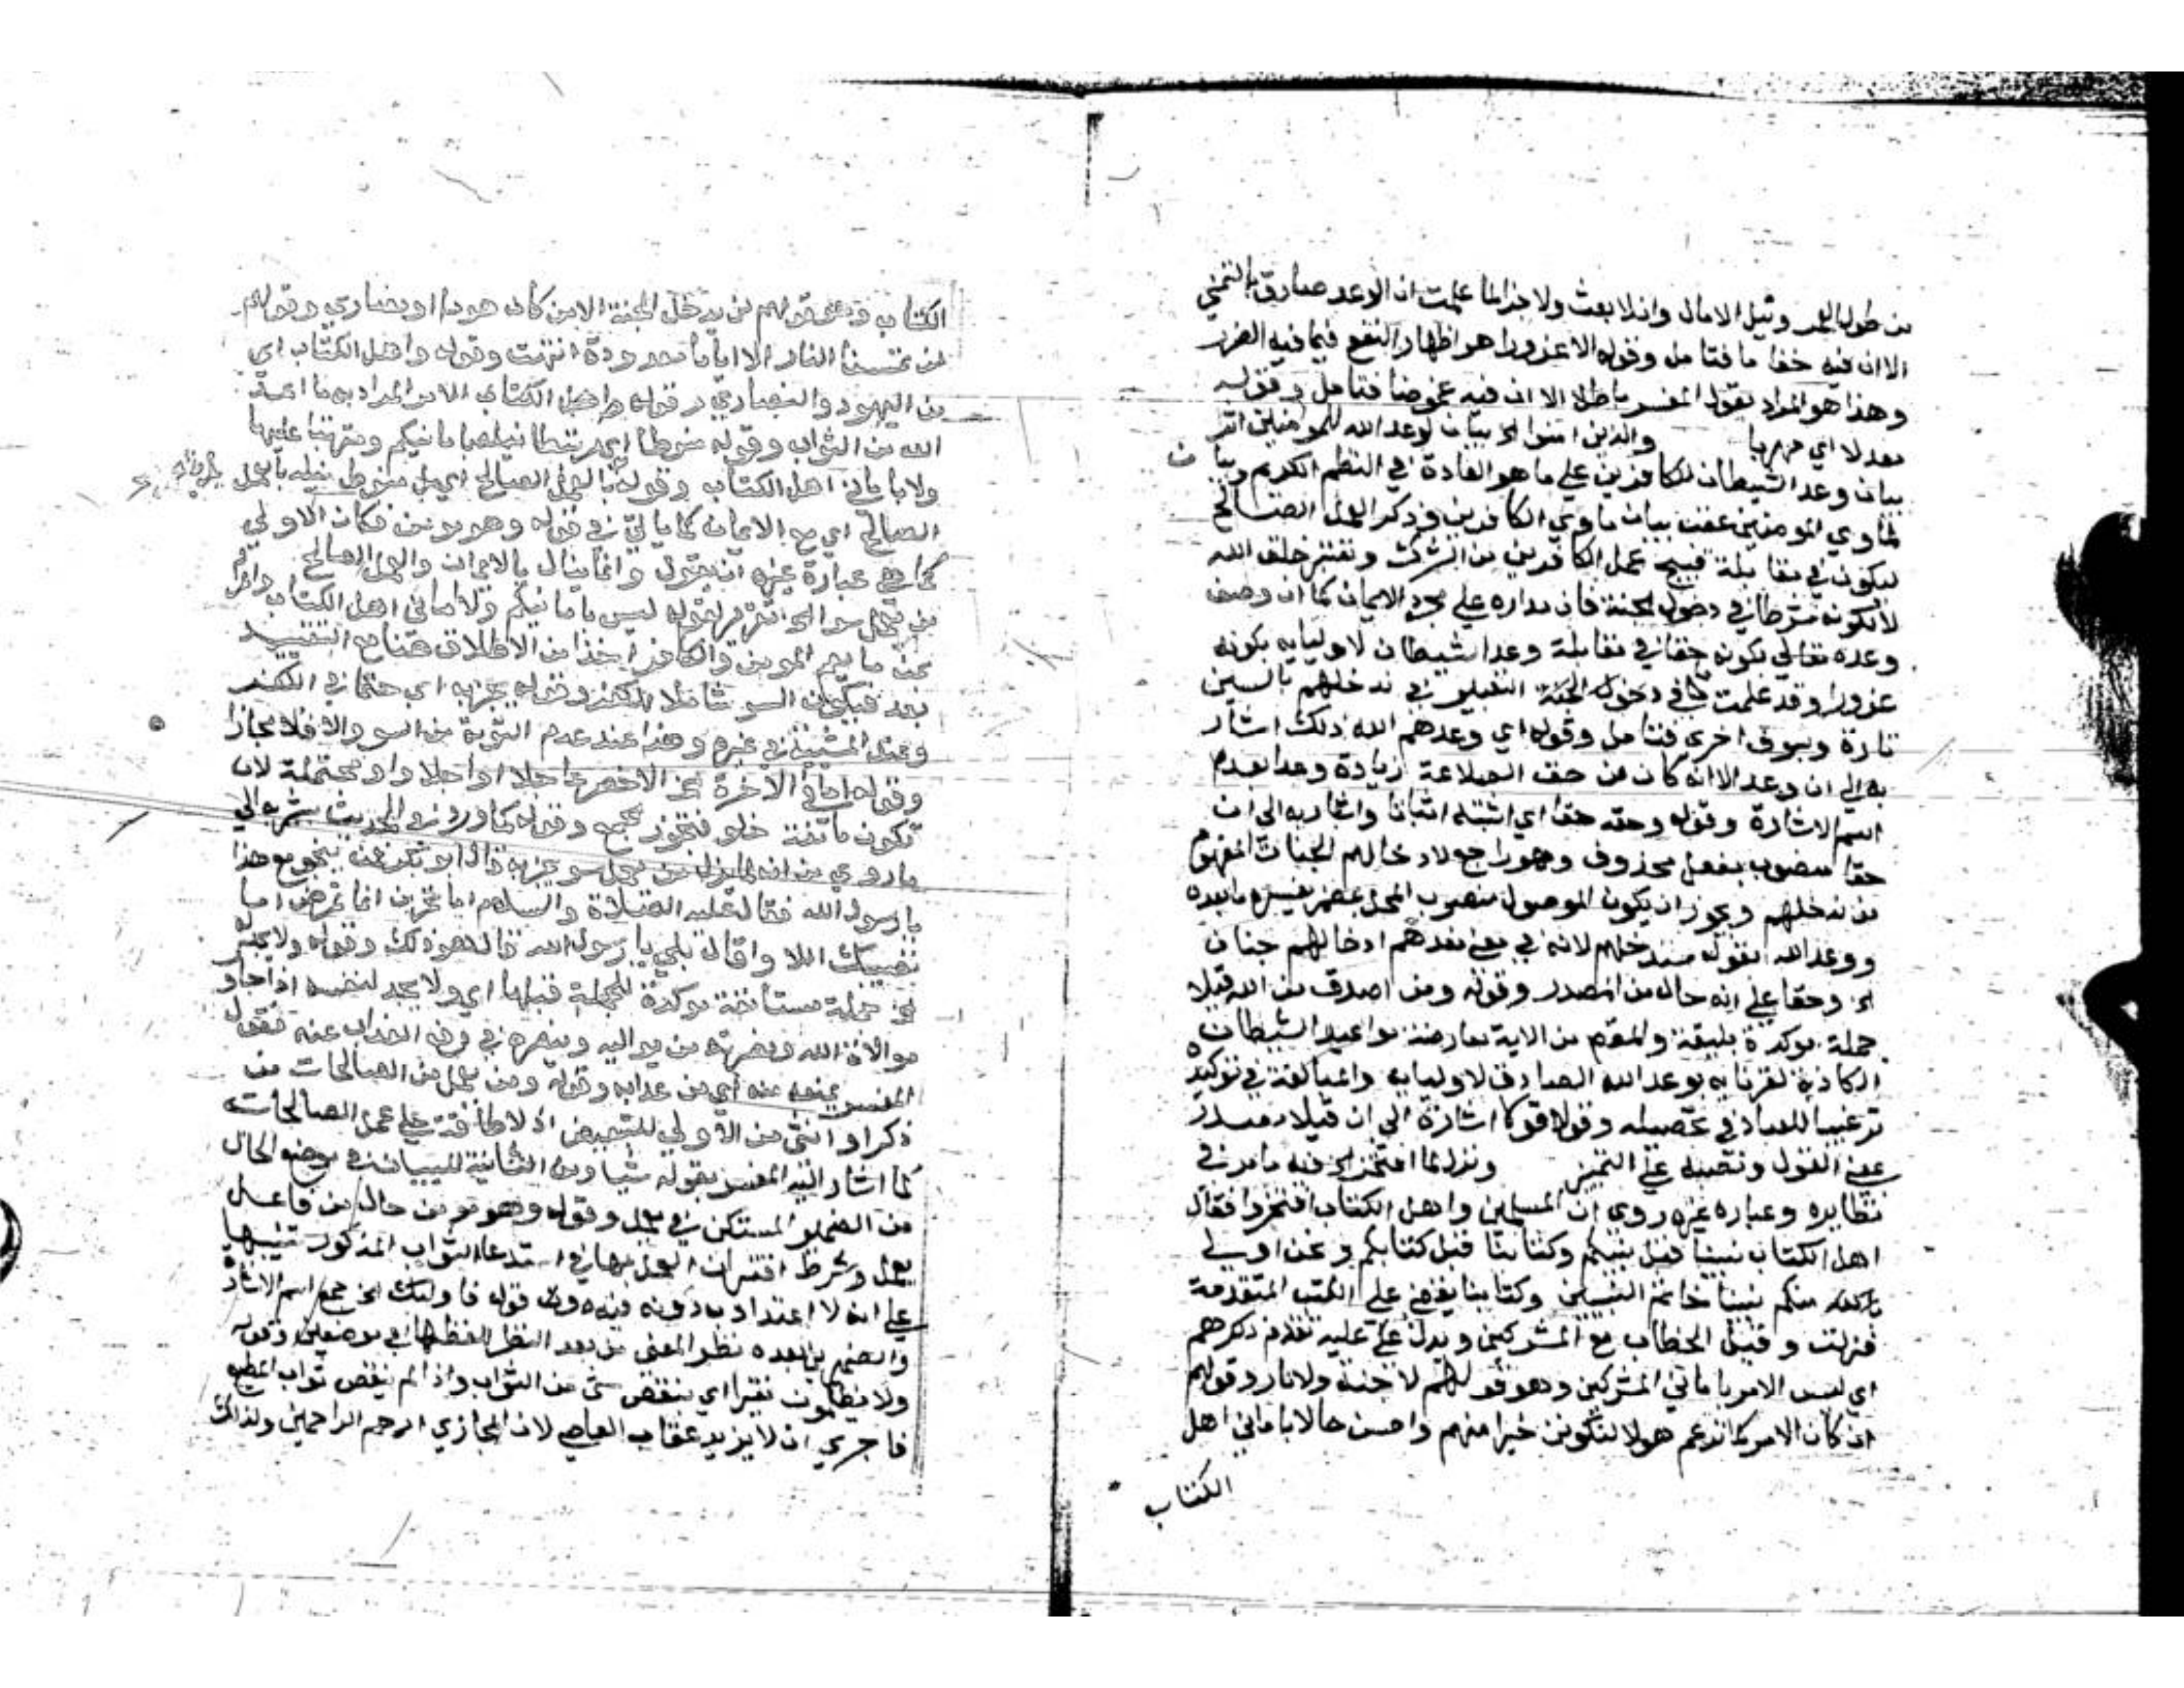 من طول العمر ونيل الامال وان لا بعث ولا جزا لما علمت ان الوعد صادق بالتمني
الا ان فيه خفا ما فتامل وقوله الا غرورا هو اظهار النفع فيما فيه الضرر
وهذا هو المراد بقول المفسر باطلا الا ان فيه غموضا فتامل وقوله
معدلا اي مهربا والذين امنوا الخ بيان لوعد الله للمومنين اثر
بيان وعد الشيطان للكافرين على ما هو العادة في النظم الكريم وبيان
لماوي المومنين عقب بيان ماوي الكافرين وذكر العمل الصالح
ليكون في مقابلة قبيح عمل الكافرين من الشرك وتغيير خلق الله
لا لكونه شرطا في دخول الجنة فان مداره على مجرد الايمان كما ان وصف
وعده تعالي بكونه حقا في مقابلة وعد الشيطان لاوليايه بكونه
غرورا وقد علمت في دخول الجنة التعبير في ندخلهم بالسين
تارة وبسوف اخرى فتامل وقوله اي وعدهم الله ذلك اشار
به الى ان وعد الا انه كان من حق الصلاعة زيادة وعدا بعدم
اسم الاشارة وقوله وحقه حقا اي اثبته اثباتا واشار به الى ان
حقا منصوب بفعل محذوف وهو راجع لادخالهم الجنات المفهوم
من ندخلهم ويجوز ان يكون الموصول منصوب المحل بمضمر يفسره ما بعده
ووعد الله بقوله سندخلهم لانه في معني نعدهم ادخالهم جنات
الخ وحقا على انه حال من المصدر وقوله ومن اصدق من الله قيلا
جملة موكدة بليغة والمقصود من الاية معارضة مواعيد الشيطان
الكاذبة لقرنايه بوعد الله الصادق لاوليايه والمبالغة في توكيده
ترغيبا للعباد في تحصيله وقوله قولا اشارة الى ان قيلا مصدر
بمعني القول ونصبه على التمييز ونزل لما افتخر الخ فيه ما مر في
نظايره وعبارة غيره روى ان المسلمين واهل الكتاب افتخروا فقال
اهل الكتاب نبينا قبل نبيكم وكتابنا قبل كتابكم ونحن اولى
بالله منكم نبينا خاتم النبيين وكتابنا يقضي على الكتب المتقدمة
فنزلت وقيل الخطاب مع المشركين ويدل عليه تقدم ذكرهم
اي ليس الامر باماني المشركين وهو قولهم لا جنة ولا نار وقولهم
ان كان الامر كما زعم هولا لنكونن خيرا منهم واحسن حالا باماني اهل
الكتاب
الكتاب وهو قولهم لن يدخل الجنة الا من كان هودا او نصاري وقولهم
لن تمسنا النار الا اياما معدودة انتهت وقوله واهل الكتاب اي
من اليهود والنصاري وقوله الامر المراد به ما اعد
الله من الثواب وقوله منوطا اي مرتبطا بامانيكم ومترتبا عليها
ولا باماني اهل الكتاب وقوله بالعمل الصالح اي بل منوط نيله بالعمل
الصالح اي مع الايمان كما ياتي في قوله وهو مومن فكان الاولي
كما هي عبارة غيره ان يقول وانما ينال بالايمان والعمل الصالح
من يعمل سوا الخ تقرير لقوله ليس بامانيكم ولا اماني اهل الكتاب
بمن ما يعم المومن والكافر اخذا من الاطلاق هنا مع التقييد
بعد فيكون السو شاملا للكفر وقوله يجز به اي حتما في الكفر
وعند المشيئة في غيره وهذا عند عدم التوبة من السو والا فلا يجازا
وقوله اما في الاخرة الخ الاخصر عاجلا او اجلا واو محتملة لان
تكون مانعة خلو فتجوز الجمع وقوله كما ورد في الحديث يشير به الي
ما روي من انه لما نزل من يعمل سو يجز به قال ابو بكر فمن ينجو مع هذا
يا رسول الله فقال عليه الصلاة والسلام اما تحزن اما تمرض اما
تصيبك اللاوا قال بلى يا رسول الله قال هو ذلك وقوله ولا يجد له
الخ جملة مستانفة موكدة للجملة قبلها اي ولا يجد لنفسه اذا جاوز
موالاة الله ونصرته من يواليه وينصره في دفع العذاب عنه فقول
المفسر يمنعه منه اي من عذابه وقوله ومن يعمل من الصالحات من
ذكر او انثى من الاولي للتبعيض اذ لا طاقة على عمل الصالحات
كما اشار اليه المفسر بقوله شيا ومن الثانية للبيان في موضع الحال
من الضمير المستكن في يعمل وقوله وهو مومن حال من فاعل
يعمل وشرط اقتران العمل بها في استدعا الثواب المذكور تنبيها
على انه لا اعتداد به دونه فيه وقوله فاوليك الخ جمع اسم الاشارة
والضمير بعده نظرا للمعنى من بعد النظر للفظها في موضعين وقوله
ولا يظلمون نقيرا اي بنقص شي من الثواب واذا لم ينقص ثواب المطيع
فاحرى ان لا يزيد عقاب العاصي لان المجازي ارحم الراحمين ولذلك